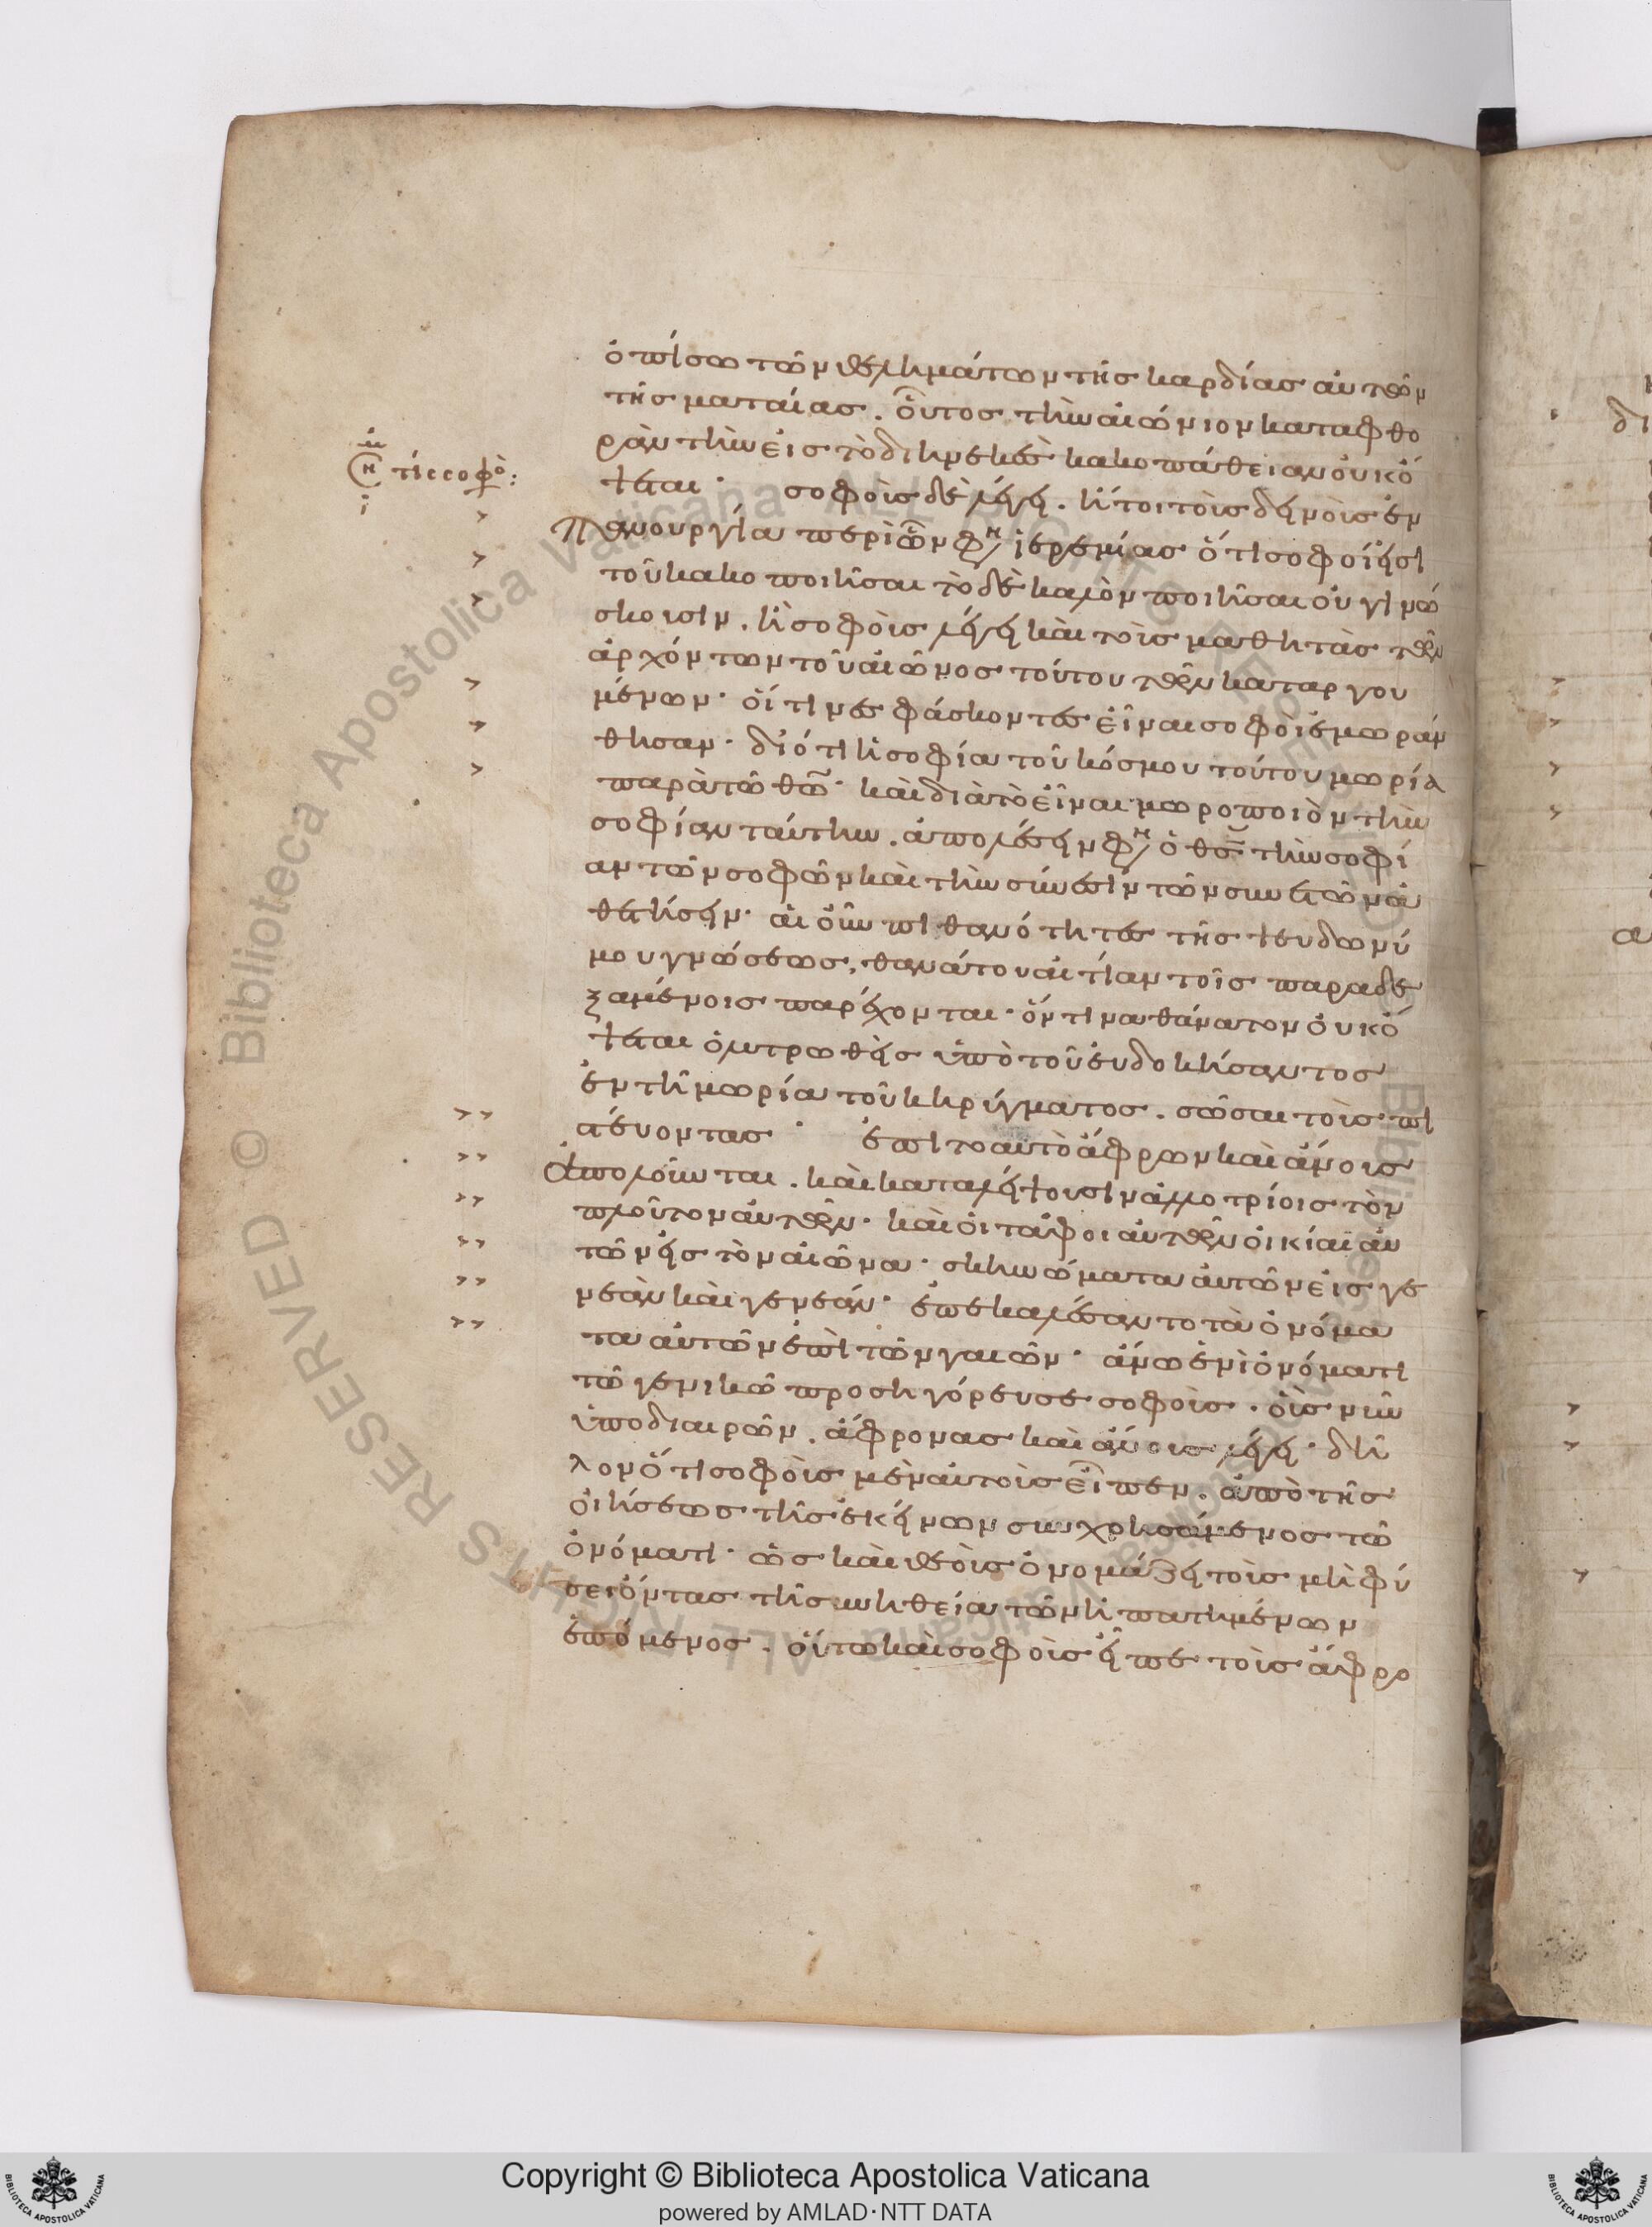 ὀπίσω τῶν θελημάτων τῆς καρδίας αὐτῶν
τῆς ματαίας. οὗτος τὴν αἰώνιον καταφθο
ρὰν τὴν εἰς τὸ διηνεκὲς κακοπάθειαν οὐκ ὄ
ψεται· σοφοὺς δὲ λέγει. ἢ τοὺς δεινοὺς ἐν
τίς σοφὸ:
πανουργία περὶ ὧν φη ἱερεμίας ὅτι σοφοί εἰσι
τοῦ κακοποιῆσαι τὸ δὲ καλὸν ποιῆσαι οὐ γινώ
σκουσιν. ἢ σοφοὺς λέγει καὶ τοὺς μαθητὰς τῶν
ἀρχόντων τοῦ αἰῶνος τούτου τῶν καταργου
μένων· οἵτινες φάσκοντες εἶναι σοφοὶ ἐμωράν
θησαν· διότι ἡ σοφία τοῦ κόσμου τούτου μωρία
παρὰ τῶ θῶ· καὶ διὰ τὸ εἶναι μωροποιὸν τὴν
σοφίαν ταύτην. ἀπολέσειν φη ὁ θς τὴν σοφί
αν τῶν σοφῶν καὶ τὴν σύνεσιν τῶν συνετῶν ἀ
θετήσειν· αἱ οὖν πιθανότητες τῆς ψευδωνύ
μου γνώσεως, θανάτου αἰτίαν τοῖς παραδε
ξαμένοις παρέχονται· ὅντινα θάνατον οὐκ ὄ
ψεται ὁ λυτρωθεὶς ὑπὸ τοῦ εὐδοκήσαντος
ἐν τῆ μωρία τοῦ κηρύγματος. σῶσαι τοὺς πι
στεύοντας· ἐπὶ τοαυτὸ ἄφρων καὶ ἄνους
ἀπολοῦνται. καὶ καταλείψουσιν ἀλλοτρίοις τὸν
πλοῦτον αὐτῶν· καὶ οἱ τάφοι αὐτῶν οἰκίαι αὐ
τῶν εἰς τὸν αἰῶνα· σκηνώματα αὐτῶν εἰς γε
νεὰν καὶ γενεάν· ἐπεκαλέσαντο τὰ ὀνόμα
τα αὐτῶν ἐπὶ τῶν γαιῶν· ἄνω ἑνὶ ὀνόματι
τῶ γενικῶ προσηγόρευσε σοφούς. οὓς νῦν
ὑποδιαιρῶν. ἄφρονας καὶ ἄνους λέγει· δῆ
λον ὅτι σοφοὺς μὲν αὐτοὺς εἶπεν. ἀπὸ τῆς
οἰήσεως τῆς ἐκείνων συγχρησάμενος τῶ
ὀνόματι· ὡς καὶ θεοὺς ὀνομάζει τοὺς μὴ φύ
σει ὄντας τῆ συνηθεία τῶν ἠπατημένων
ἑπόμενος. οὕτω καὶ σοφοὺς εἶπε τοὺς ἄφρο
Copyright © Biblioteca Apostolica Vaticana
powered by AMLAD·NTT DATA